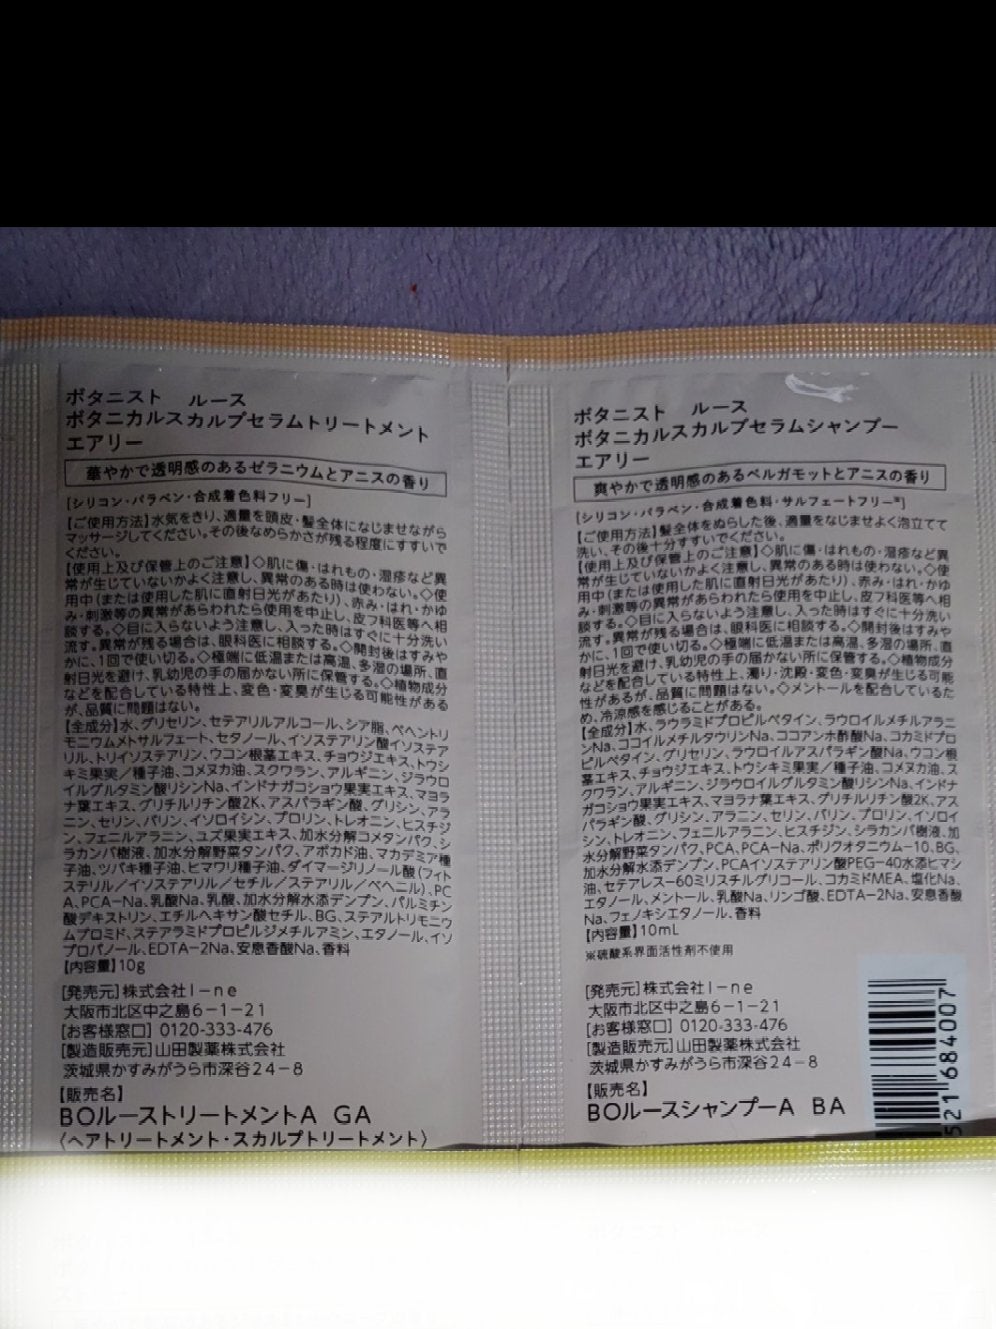 ボタニスト ルース
ボタニカルスカルプセラムトリートメント
エアリー
華やかで透明感のあるゼラニウムとアニスの香り
[シリコン・パラベン・合成着色料フリー]
【ご使用方法】水気をきり、適量を頭皮・髪全体になじませながら
マッサージしてください。その後なめらかさが残る程度にすすいで
ください。
【使用上及び保管上のご注意】◇肌に傷・はれもの・湿疹など異
常が生じていないかよく注意し、異常のある時は使わない。◇使
用中(または使用した肌に直射日光があたり)、赤み・はれ・かゆ
み・刺激等の異常があらわれたら使用を中止し、皮フ科医等へ相
談する。◇目に入らないよう注意し、入った時はすぐに十分洗い
流す。異常が残る場合は、眼科医に相談する。◇開封後はすみや
かに、1回で使い切る。◇極端に低温または高温、多湿の場所、直
射日光を避け、乳幼児の手の届かない所に保管する。◇植物成分
などを配合している特性上、変色・変臭が生じる可能性がある
が、品質に問題はない。
【全成分】水、グリセリン、セテアリルアルコール、シア脂、ベヘントリ
モニウムメトサルフェート、セタノール、イソステアリン酸イソステア
リル、トリイソステアリン、ウコン根茎エキス、チョウジエキス、トウシ
キミ果実/種子油、コメヌカ油、スクワラン、アルギニン、ジラウロ
イルグルタミン酸リシンNa、インドナガコショウ果実エキス、マヨラ
ナ葉エキス、グリチルリチン酸2K、アスパラギン酸、グリシン、アラ
ニン、セリン、バリン、イソロイシン、プロリン、トレオニン、ヒスチジ
ン、フェニルアラニン、ユズ果実エキス、加水分解コメタンパク、シ
ラカンバ樹液、加水分解野菜タンパク、アボカド油、マカデミア種
子油、ツバキ種子油、ヒマワリ種子油、ダイマージリノール酸(フィト
ステリル/イソステアリル/セチル/ステアリル/ベヘニル)、PC
A、PCA-Na、乳酸Na、乳酸、加水分解水添デンプン、パルミチン
酸デキストリン、エチルヘキサン酸セチル、BG、ステアルトリモニウ
ムブロミド、ステアラミドプロピルジメチルアミン、エタノール、イソ
プロパノール、EDTA-2Na、安息香酸Na、香料
【内容量】10g
[発売元]株式会社I-ne
大阪市北区中之島6-1-21
[お客様窓口] 0120-333-476
[製造販売元]山田製薬株式会社
茨城県かすみがうら市深谷24-8
【販売名】
BOルーストリートメントA GA
〈ヘアトリートメント・スカルプトリートメント〉
ボタニスト ルース
ボタニカルスカルプセラムシャンプー
エアリー
爽やかで透明感のあるベルガモットとアニスの香り
[シリコン・パラベン・合成着色料・サルフェートフリー※]
【ご使用方法】髪全体をぬらした後、適量をなじませよく泡立てて
洗い、その後十分すすいでください。
【使用上及び保管上のご注意】◇肌に傷・はれもの・湿疹など異
常が生じていないかよく注意し、異常のある時は使わない。◇使
用中(または使用した肌に直射日光があたり)、赤み・はれ・かゆ
み・刺激等の異常があらわれたら使用を中止し、皮フ科医等へ相
談する。◇目に入らないよう注意し、入った時はすぐに十分洗い
流す。異常が残る場合は、眼科医に相談する。◇開封後はすみや
かに、1回で使い切る。◇極端に低温または高温、多湿の場所、直
射日光を避け、乳幼児の手の届かない所に保管する。◇植物成分
などを配合している特性上、濁り・沈殿・変色・変臭が生じる可能
性があるが、品質に問題はない。◇メントールを配合しているた
め、冷涼感を感じることがある。
【全成分】水、ラウラミドプロピルベタイン、ラウロイルメチルアラニ
ンNa、ココイルメチルタウリンNa、ココアンホ酢酸Na、コカミドプロ
ピルベタイン、グリセリン、ラウロイルアスパラギン酸Na、ウコン根
茎エキス、チョウジエキス、トウシキミ果実/種子油、コメヌカ油、ス
クワラン、アルギニン、ジラウロイルグルタミン酸リシンNa、インドナ
ガコショウ果実エキス、マヨラナ葉エキス、グリチルリチン酸2K、アス
パラギン酸、グリシン、アラニン、セリン、バリン、プロリン、イソロイ
シン、トレオニン、フェニルアラニン、ヒスチジン、シラカンバ樹液、加
水分解野菜タンパク、PCA、PCA-Na、ポリクオタニウム-10、BG、
加水分解水添デンプン、PCAイソステアリン酸PEG-40水添ヒマシ
油、セテアレス-60ミリスチルグリコール、コカミドMEA、塩化Na、
エタノール、メントール、乳酸Na、リンゴ酸、EDTA-2Na、安息香酸
Na、フェノキシエタノール、香料
【内容量】10mL
※硫酸系界面活性剤不使用
[発売元]株式会社I-ne
大阪市北区中之島6-1-21
[お客様窓口] 0120-333-476
[製造販売元]山田製薬株式会社
茨城県かすみがうら市深谷24-8
【販売名】
BOルースシャンプーA BA
521684007